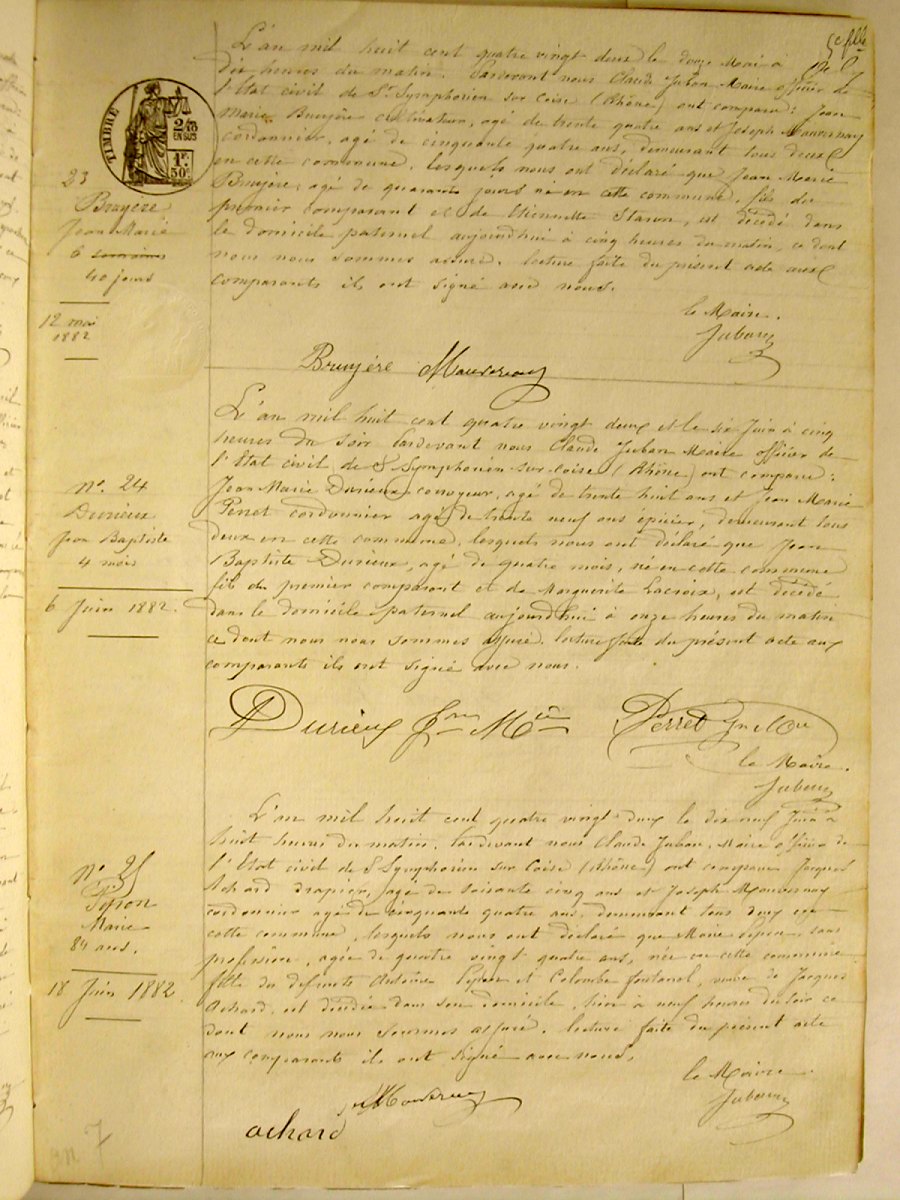 5e flle
L'an mil huit cent quatre vingt deux le douze Mai à
dix heures du matin. Pardevant nous Claude Juban Maire officier de
l'Etat civil de St Symphorien sur Coise (Rhône) ont comparu: Jean
Marie Bruyère cultivateur, agé de trente quatre ans et Joseph Mauvernay
cordonnier, agé de cinquante quatre ans, demeurant tous deux
en cette commune. lesquels nous ont déclaré que Jean Marie
Bruyère, agé de quarante jours né en cette commune, fils du
premier comparant et de Etiennette Staron, est décédé dans
le domicile paternel aujourd'hui à cinq heures du matin, ce dont
nous nous sommes assuré. lecture faite du présent acte aux
comparants ils ont signé avec nous.
le Maire.
Juban
Bruyère Mauvernay
TIMBRE
2/10
EN SUS
1F.
50c.
23
Bruyère
Jean Marie
6 semaines
40 jours
12 mai
1882
L'an mil huit cent quatre vingt deux et le six Juin à cinq
heures du soir Pardevant nous Claude Juban Maire officier de
l'Etat civil de St Symphorien-sur-Coise (Rhône) ont comparu:
Jean Marie Durieux convoyeur, agé de trente huit ans et Jean Marie
Perret cordonnier agé de trente neuf ans épicier, demeurant tous
deux en cette commune, lesquels nous ont déclaré que Jean
Baptiste Durieux, agé de quatre mois, né en cette commune
fils du premier comparant et de Marguerite Lacroix, est décédé
dans le domicile paternel aujourd'hui à onze heures du matin
ce dont nous nous sommes assuré. lecture faite du présent acte aux
comparants ils ont signé avec nous.
N°. 24
Durieux
Jean Baptiste
4 mois
6 Juin 1882.
Durieux Jean Mie Perret Jn Mie
le Maire.
Juban
L'an mil huit cent quatre vingt deux le dix neuf Juin à
huit heures du matin. Pardevant nous Claude Juban, Maire officier de
l'Etat civil de St Symphorien sur Coise (Rhône) ont comparu Jacques
Achard drapier, agé de soixante cinq ans et Joseph Mauvernay
cordonnier agé de cinquante quatre ans, demeurant tous deux en
cette commune, lesquels nous ont déclaré que Marie Pipon, sans
profession, agée de quatre vingt quatre ans, née en cette commune
fille des défunts Antoine et Colombe Fontanel, veuve de Jacques
Achard, est décédée dans son domicile, hier à neuf heures du soir ce
dont nous nous sommes assuré. lecture faite du présent acte
aux comparants ils ont signé avec nous.
N° 25
Marie
84 ans.
18 Juin 1882
le Maire
Juban
Mauvernay
achard
7